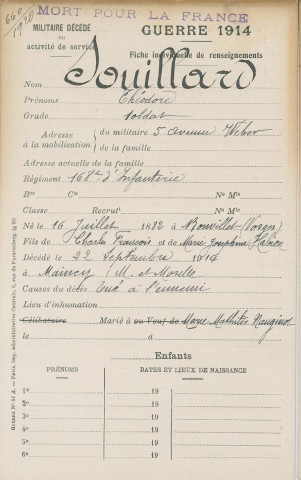 660/1920
MORT POUR LA FRANCE
MILITAIRE DÉCÉDÉ
en
activité de service
GUERRE 1914
Fiche individuelle de renseignements
Nom Souillard
Prénoms Théodore
Grade Soldat
Adresse à la mobilisation du militaire 5 avenue Weber
de la famille
Adresse actuelle de la famille
Régiment 168e d'Infanterie
Bon Cie No Mle
Classe Recrut No Mle
Né le 16 Juillet 1882 à (Vosges)
Fils de Charles François et de Marie Joséphine
Décédé le 22 Septembre 1914
à (M. et Moselle
Causes du décès tué à l'ennemi
Lieu d'inhumation
Célibataire Marié à ou Veuf de Marie Mathilde
le à
Enfants
PRÉNOMS DATES ET LIEUX DE NAISSANCE
1o 19
2o 19
3o 19
4o 19
5o 19
6o 19